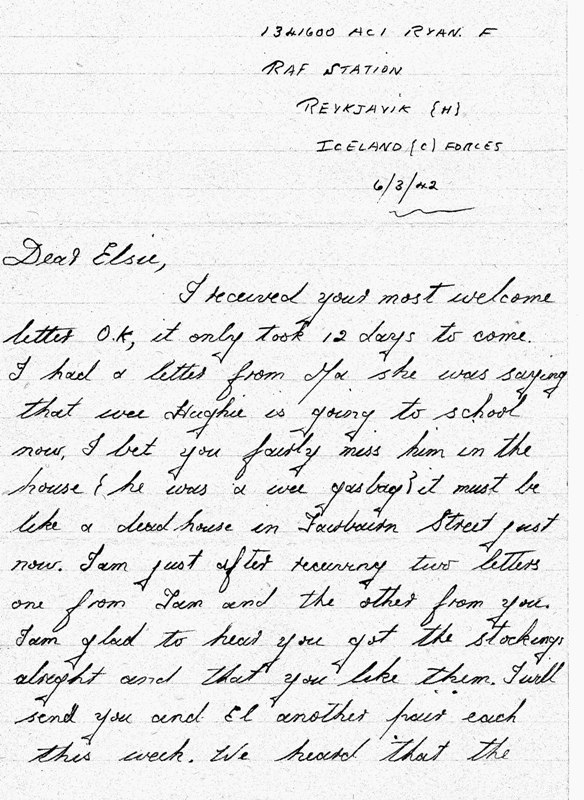 1341600 AC1 RYAN. F
RAF STATION
REYKJAVIK {H}
ICELAND {C} FORCES
6/3/42
Dear Elsie,
I received your most welcome
letter O.K, it only took 12 days to come.
I had a letter from Ma she was saying
that wee Hughie is going to school
now, I bet you fairly miss him in the
house { he was a wee gasbag} it must be
like a dead house in Fairbairn Street just
now. I am just after receiving two letters
one from Ian and the other from you.
I am glad to hear you got the stockings
alright and that you like them. I will
send you and El another pair each
this week. We heard that the